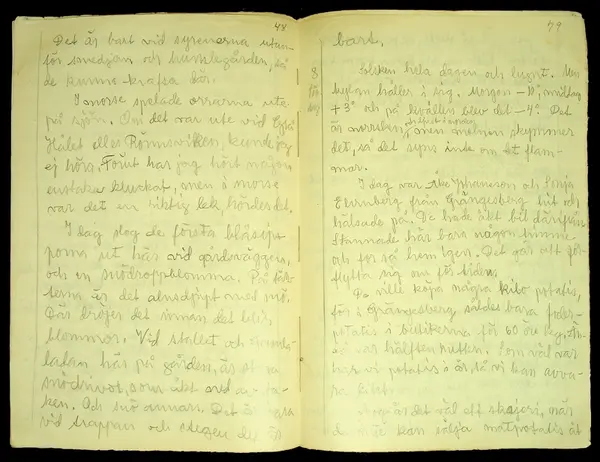 48
Det är bart vid syrenerna utan-
för smedjan och humlegården, så
de kunna krafsa där.
I morse spelade orrarna ute
på sjön. Om det var ute vid
Hålet eller Römsviken, kunde jag
ej höra. Förut har jag hört någon
enstaka kluckat, men i morse
var det en riktig lek, hördes det.
I dag slog de första blåsip-
porna ut här vid gårdsväggen,
och en snödroppblomma. På
är det alnsdjupt med snö.
Där dröjer det innan det blir
blommor. Vid stallet och
ladan här på gården, är st
snödrivor, som åkt ned av ta-
ken. Och snö annars. Det är
vid trappan och stegen det är
49
bart.
8
Solsken hela dagen och lugnt. Men
kylan håller i sig. Morgon -10°, middag
+3° och på kvällen blev det -4°. Det
är norrsken, men molnen skymmer
det, så det syns inte om det flam-
mar.
I dag var Åke Johansson och Sonja
från Grängesberg hit och
hälsade på. De hade åkt bil därifrån.
Stannade här bara någon timme
och for så hem igen. Det går att för-
flytta sig nu för tiden.
De ville köpa några kilo potatis,
för i Grängesberg såldes bara foder-
potatis i butikerna för 60 öre kg.
var hälften rutten. Som väl var
har vi potatis i år, så vi kan avva-
ra litet.
är det väl ett skojeri, när
de kan sälja matpotatis åt